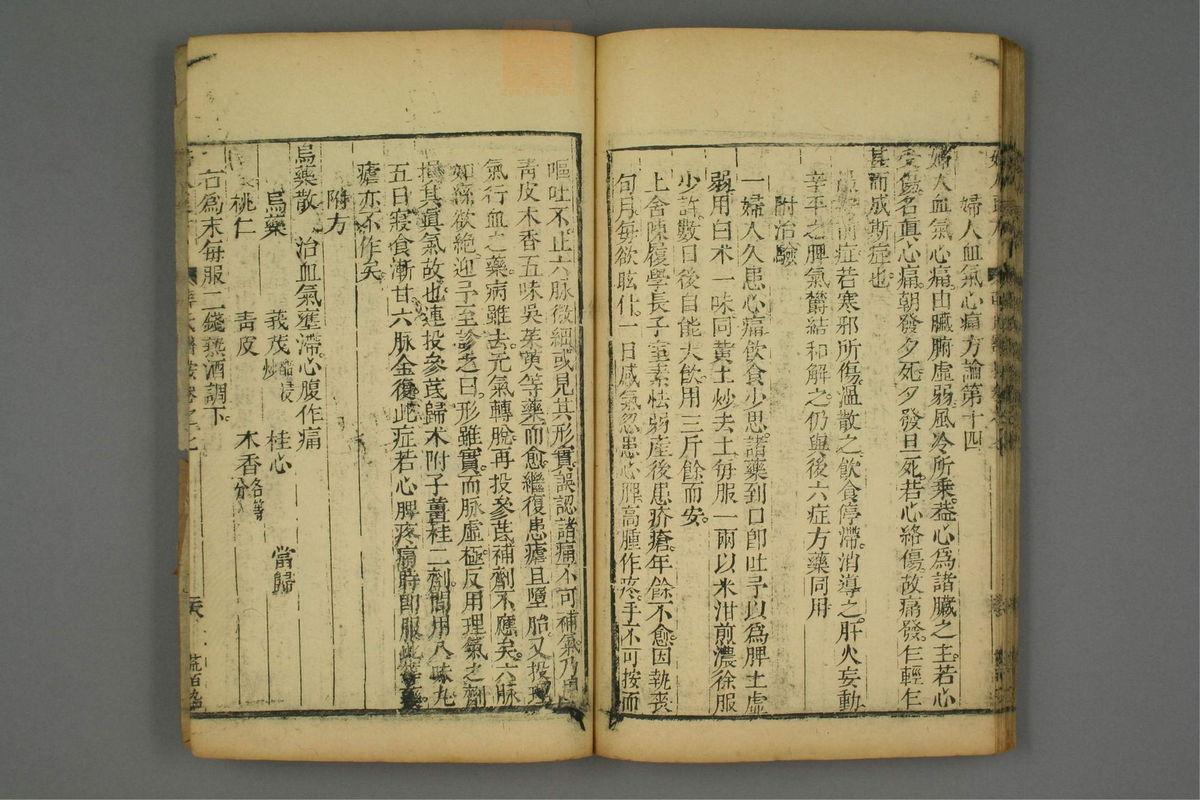 婦人血氣心痛方論第十四
婦人血氣心痛由臟腑虛弱風冷所乘蓋心爲諸臟之主若心
受傷名眞心痛朝發夕死夕發旦死若心絡傷故痛發乍輕乍
甚而成斯症也
前症若寒邪所傷溫散之飮食停滯消導之肝火妄動
辛平之脾氣鬱結和解之仍與後六症方藥同用
附治驗
一婦人久患心痛飮食少思諸藥到口卽吐予以爲脾土虛
弱用白朮一味同黃土炒去土毎服一兩以米泔煎濃徐服
少許數日後自能大飮用三斤餘而安
上舍陳履學長子室素怯弱產後患疥瘡年餘不愈因執喪
旬月毎欲眩仆一日感氣忽患心脾高腫作疼手不可按而
嘔吐不止六脉微細或見其形實誤認諸痛不可補氣乃用
靑皮木香五味吳茱萸等藥而愈繼復患瘧且墮胎又投理
氣行血之藥病雖去元氣轉脫再投參芪補劑不應矣六脉
如絲欲絕迎予至診之曰形雖實而脉虛極反用理氣之劑
損其眞氣故也連投參芪歸朮附子薑桂二劑間用八味丸
五日寢食漸甘六脉全復此症若心脾疼痛時卽服此等藥
瘧亦不作矣
附方
烏藥散 治血氣壅滯心腹作痛
烏藥 莪茂醋浸炒 桂心 當歸
桃仁 靑皮 木香各等分
右爲末每服二錢熱酒調下